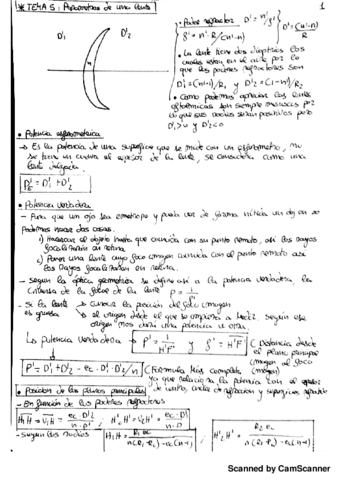 * TEMA 5: Parámetros de una lente
1
D'1 D'2
n
• Poder refractor D' = n'/f'
f' = n'·R/(n'-n) D' = (n'-n)/R
• La lente tiene dos dioptrios los
cuales están en el aire por lo
que los poderes refractores son
D'1 = (n-1)/R1 y D'2 = (1-n)/R2
• Como podemos apreciar las lentes
oftálmicas son siempre meniscos por
lo que sus radios serán positivos pero
D'1>0 y D'2<0
• Potencia esferométrica
→ Es la potencia de una superficie que se mide con un esferómetro, no
se tiene en cuenta el espesor de la lente, se considera como una
lente delgada.
D'E = D'1 + D'2
• Potencia verdadera
- Para que un ojo sea emétrope y pueda ver de forma nítida un objeto se
Podemos hacer dos cosas.
1) Acercar el objeto hasta que coincida con su punto remoto, así los rayos
focalizarán en retina
2) Poner una lente cuyo foco imagen coincida con el punto remoto así
los rayos focalizarán en retina.
- Según la óptica geométrica se define así a la potencia verdadera, la
inversa de la focal de la lente P = 1/f'
- Si la lente es gruesa → conocer la posición del foco imagen
→ el origen desde el que se empieza a medir según ese
origen nos dará una potencia u otra.
La potencia verdadera → P' = 1/H'F' y f' = H'F' (Distancia desde
el plano principal
imagen al foco
imagen)
P' = D'1 + D'2 - ec·D'1·D'2/n (Fórmula más completa
ya que relaciona la potencia con el espesor
de centro, índice de refracción y superficies refractoras
• Posición de los planos principales
- En función de los poderes refractores
H1H = V1H = ec·D'2/n·P' ; H'2H' = V2H' = ec·D'1/n·P'
- según los radios H1H = R1·ec/n(R1-R2)-ec(n-1) ; H'2H' = R2·ec/n(R1-R2)-ec(n-1)
Scanned by CamScanner